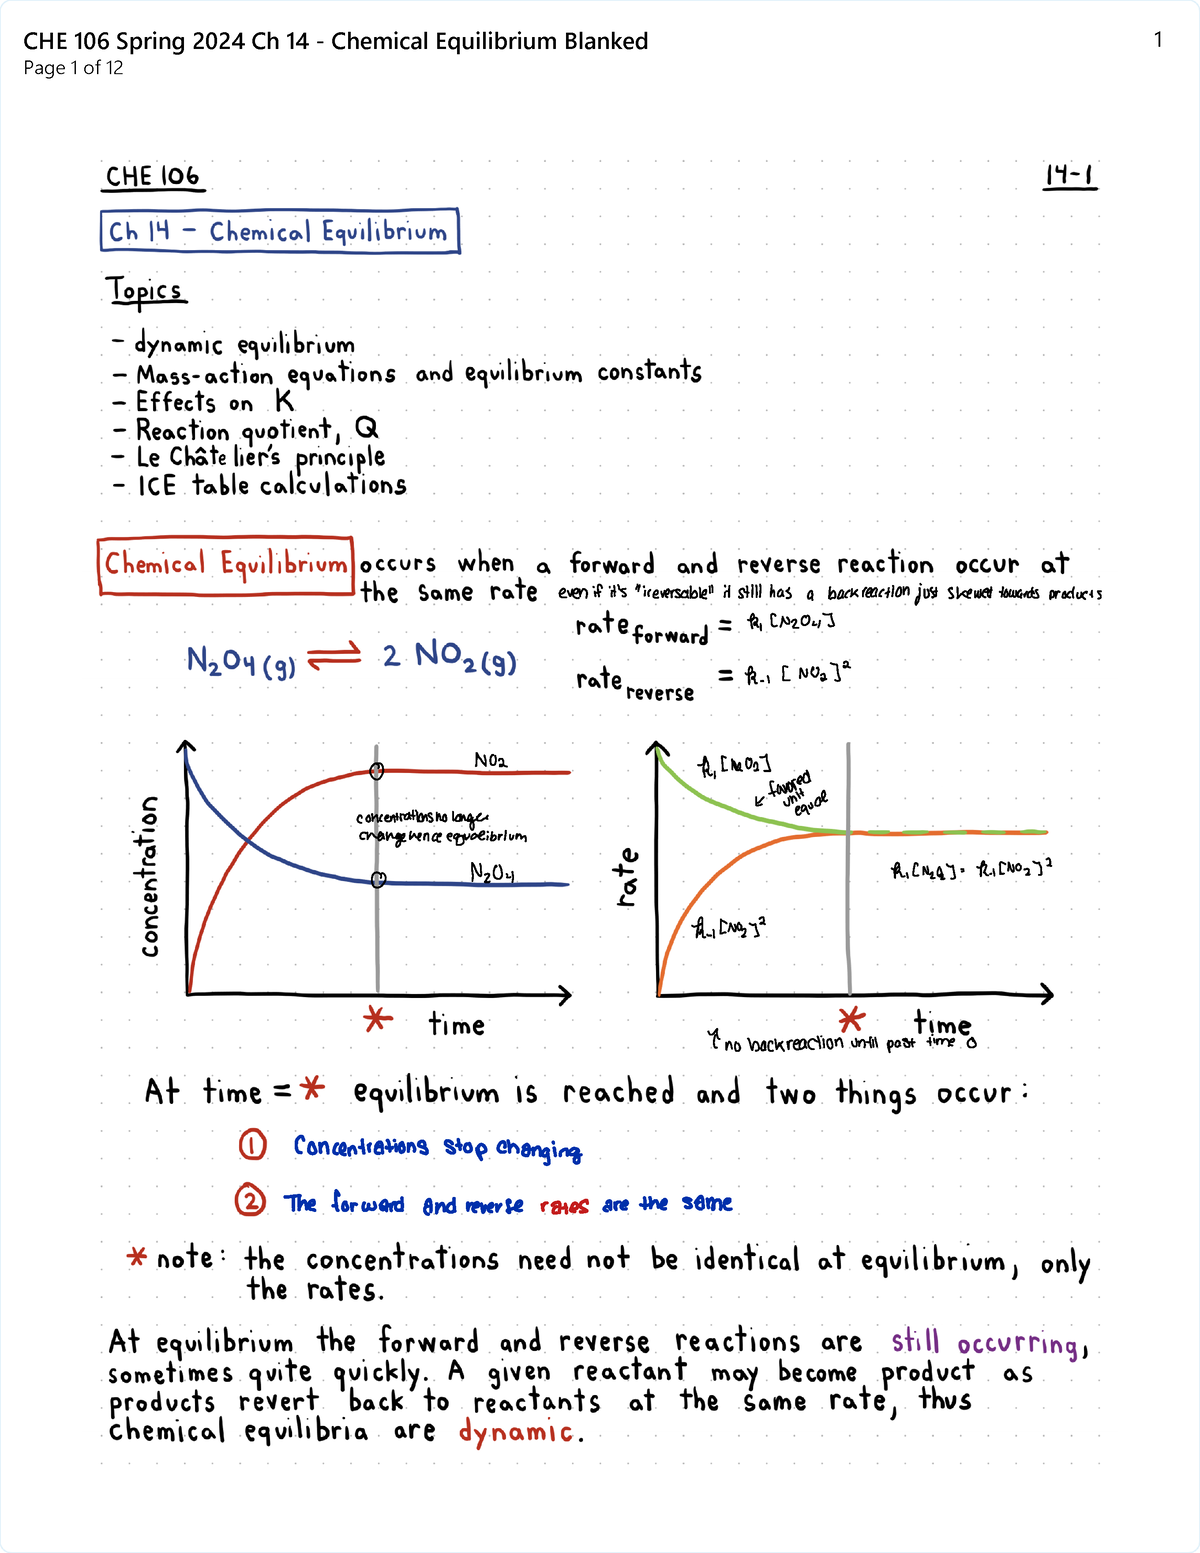 CHE 106 Spring 2024 Ch 14 - Chemical Equilibrium Blanked
1
Page 1 of 12
CHE 106
14-1
Ch 14 - Chemical Equilibrium
Topics
- dynamic equilibrium
- Mass-action equations and equilibrium constants
- Effects on K
- Reaction quotient, Q
- Le Châtelier's principle
- ICE table calculations
Chemical Equilibrium occurs when a forward and reverse reaction occur at
the same rate even if it's "irreversable" it still has a back reaction just skewed towards products
rate forward = k₁ [N₂O₄]
N₂O₄(g) ⇌ 2 NO₂(g)
rate reverse = k₋₁ [NO₂]²
concentration
NO₂
concentrations no longer
change hence equilibrium
N₂O₄
* time
rate
k₁[NO₂]
↙ favored
until
equal
k₁[N₂O₄] = k₁[NO₂]²
k₋₁[NO₂]²
* time
↑ no back reaction until past time 0
At time = * equilibrium is reached and two things occur:
① Concentrations stop changing
② The forward and reverse rates are the same
* note: the concentrations need not be identical at equilibrium, only
the rates.
At equilibrium the forward and reverse reactions are still occurring,
sometimes quite quickly. A given reactant may become product as
products revert back to reactants at the same rate, thus
chemical equilibria are dynamic.